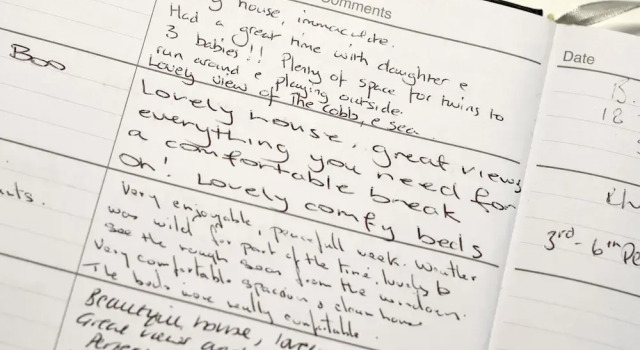 Comments
y house, immaculate.
Had a great time with daughter e
3 babies!! Plenty of space for twins to
run around e playing outside.
Lovely view of the Cobb, e sea
Boo
Lovely house, great views
everything you need for
a comfortable break
Oh! Lovely comfy beds
Very enjoyable, peacefull week. Weather
was wild for part of the time, lovely to
see the rough seas from the windows.
Very comfortable spacious & clean house
The beds were really comfortable.
Beautiful house,
Great views and
Date
15.
18
3rd - 6th De